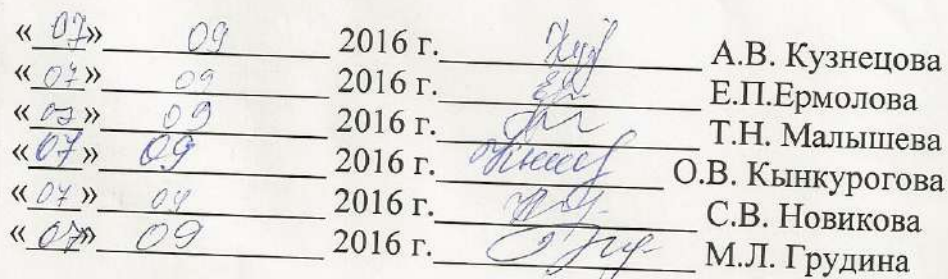 «07» 09 2016 г. А.В. Кузнецова
«07» 09 2016 г. Е.П.Ермолова
«07» 09 2016 г. Т.Н. Малышева
«07» 09 2016 г. О.В. Кынкурогова
«07» 09 2016 г. С.В. Новикова
«07» 09 2016 г. М.Л. Грудина